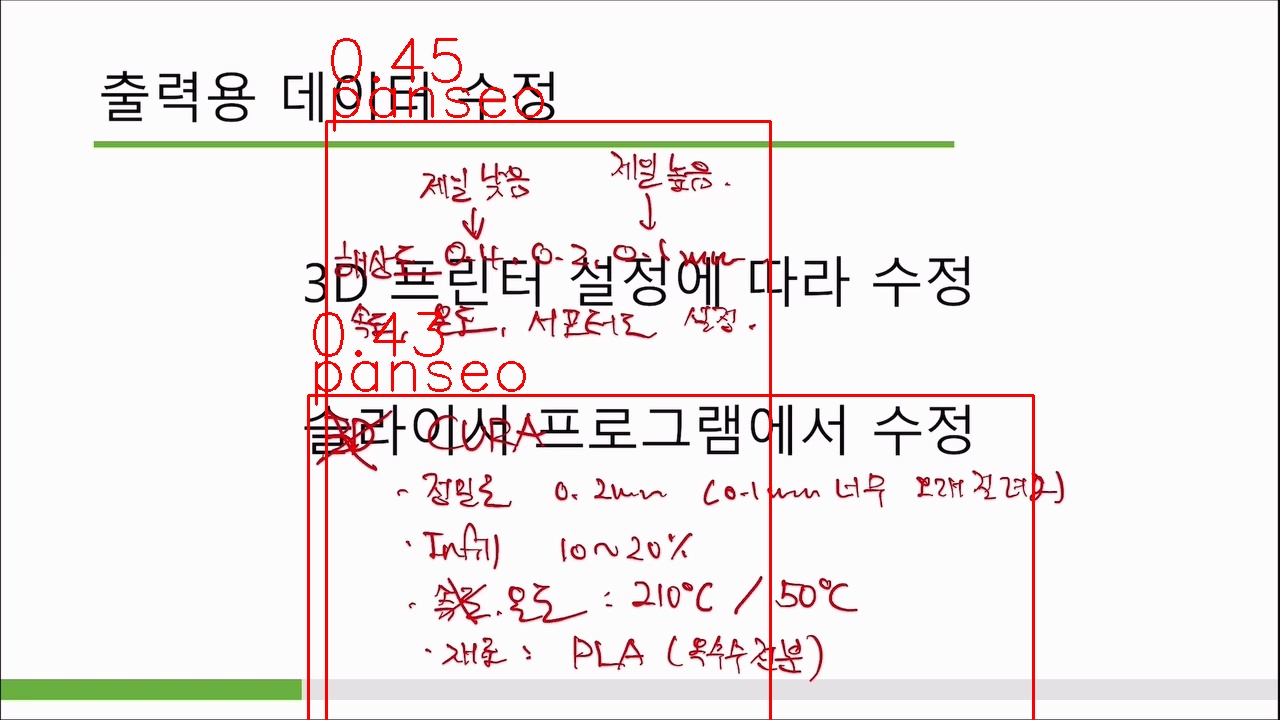 0.45
출력용 데이터 수정
panseo
제일 낮음 제일 높음.
해상도 0.4, 0.2, 0.1mm
3D 프린터 설정에 따라 수정
속도, 온도, 서포터도 설정.
0.43
panseo
슬라이서 프로그램에서 수정
3D CURA
· 정밀도 0.2mm (0.1mm 너무 오래 걸려요)
· Infill 10~20%
· 속도, 온도 : 210°C / 50°C
· 재료 : PLA (옥수수전분)